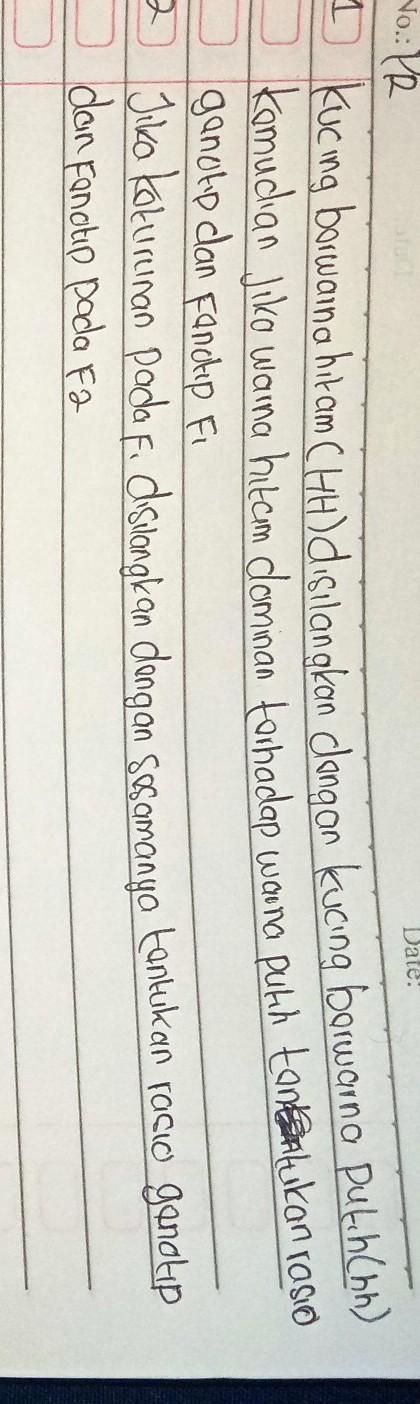 No.: PR
Date:
1 Kucing barwarna hitam (HH) disilangkan dangan kucing barwarna putih (hh)
kamudian jika warna hitam daminan tarhadap warna putih tantukan rasio
ganotip dan Fanotip F1
2 Jika katurunan pada F1 disilangkan dangan sasamanya tantukan rasio ganotip
dan Fanotip pada F2